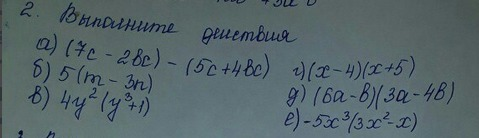 2. Выполните действия
а) (7с - 2вс) - (5с + 4вс)
б) 5(m - 3n)
в) 4y²(y³+1)
г) (x - 4)(x + 5)
д) (6a - в)(3a - 4в)
е) -5x³(3x² - x)